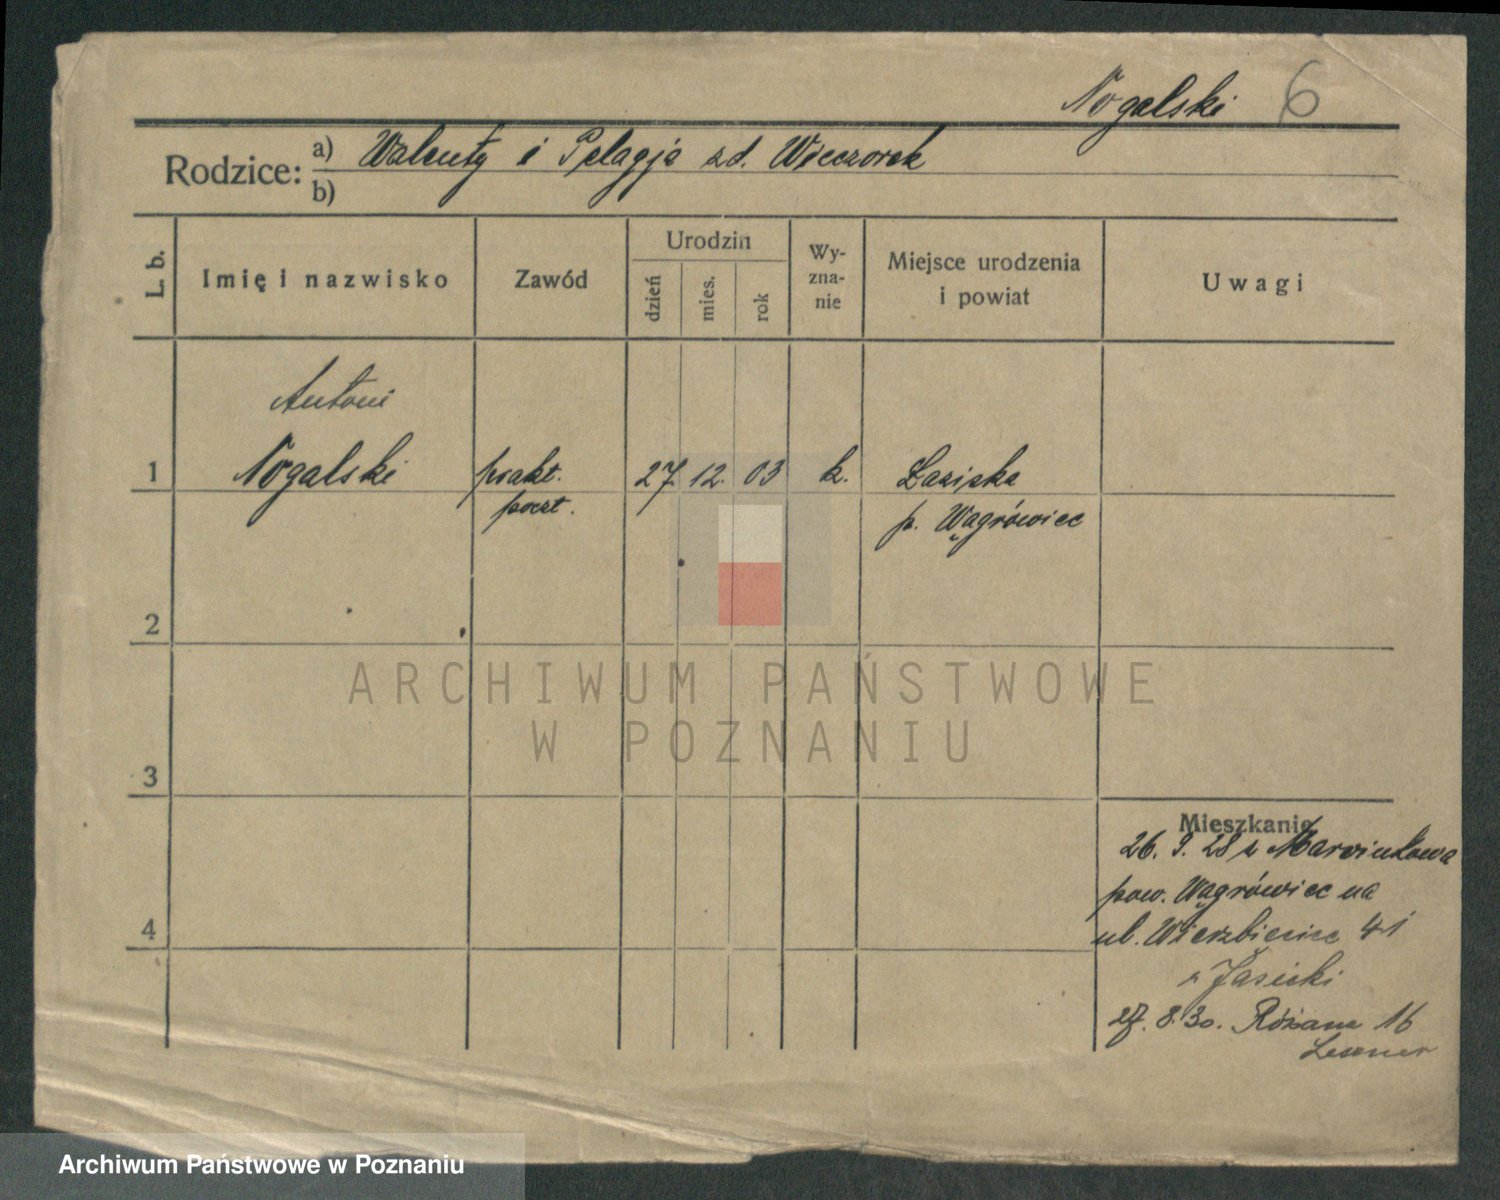 Nogalski 6
Rodzice: a) Walenty i Pelagja zd. Wieczorek
b)
L. b.
Imię i nazwisko
Zawód
Urodzin
dzień
mies.
rok
Wy-
zna-
nie
Miejsce urodzenia
i powiat
Uwagi
Antoni
1 Nogalski prakt. 27. 12. 03 k. Łaziska
poczt. p. Wągrówiec
2
ARCHIWUM PAŃSTWOWE
W POZNANIU
3
Mieszkanie
26. 9. 28 z
pow. Wągrówiec na
4 ul. Wierzbięcice 41
Jasicki
27. 8. 30. Różana 16
Archiwum Państwowe w Poznaniu